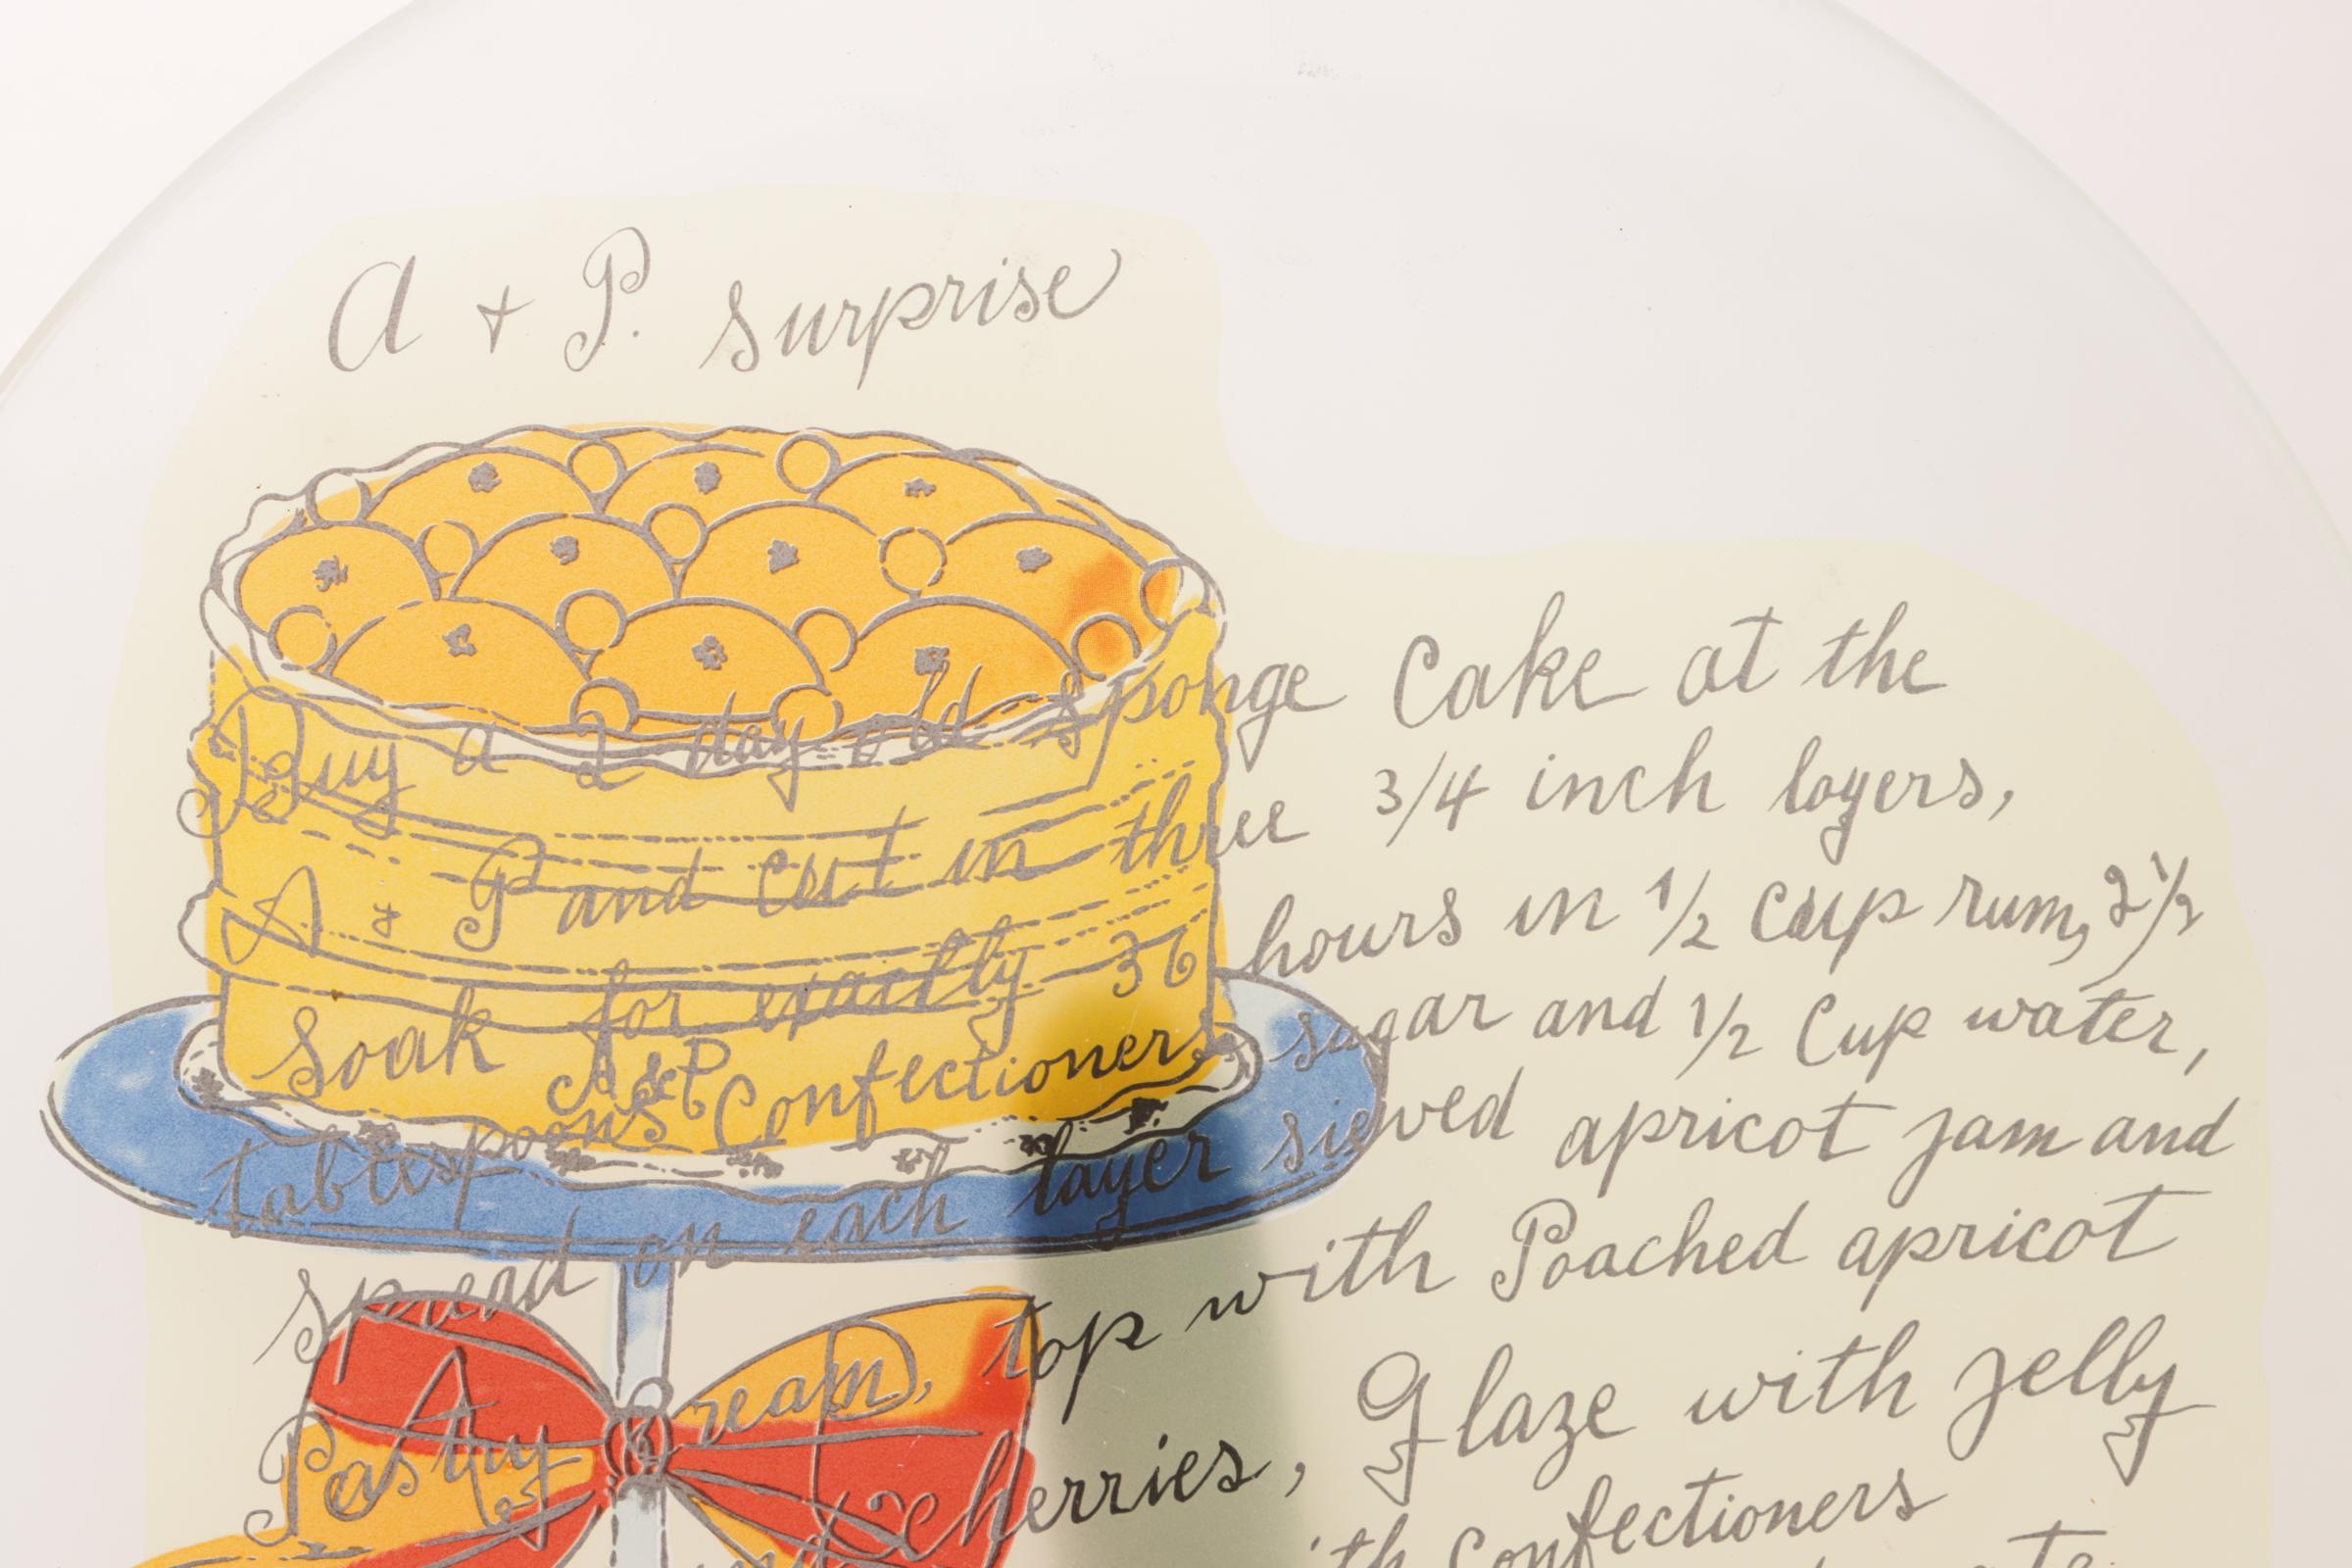 A + P. surprise
Buy a 2 day old sponge Cake at the
A + P and cut in three 3/4 inch layers,
Soak for exactly 36 hours in 1/2 cup rum, 2 1/2
A & P
tablespoons Confectioners sugar and 1/2 Cup water,
spread on each layer sieved apricot jam and
Pastry cream, top with Poached apricot
and cherries, Glaze with jelly
Confectioners